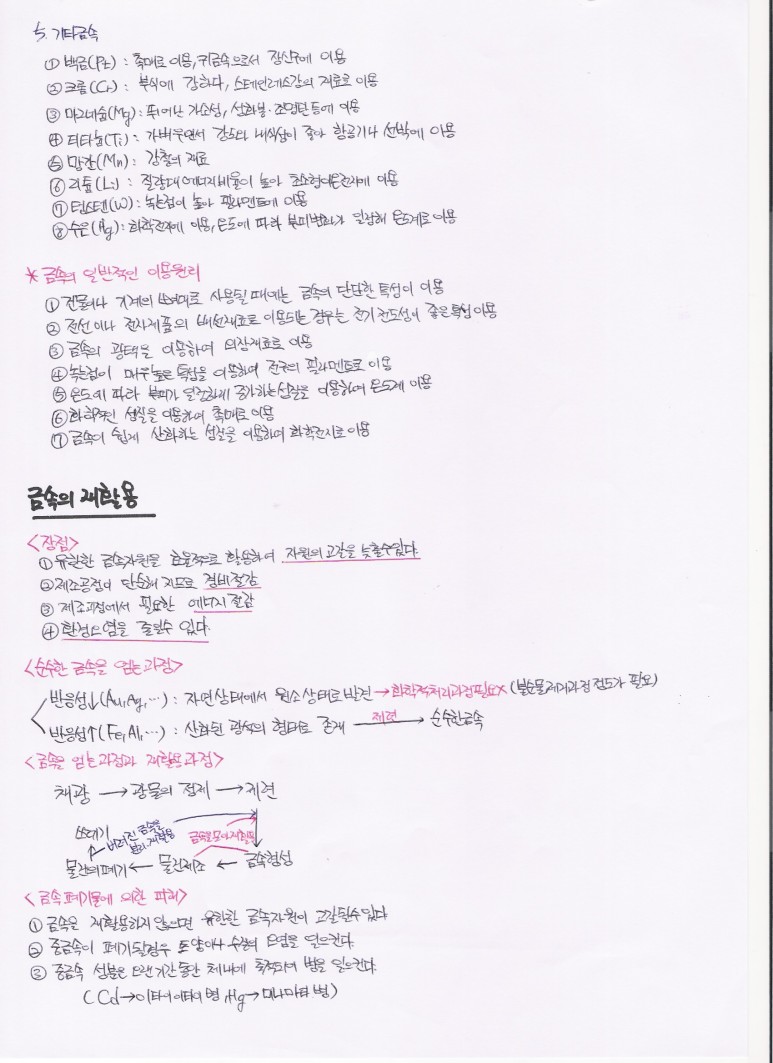 5. 기타금속
① 백금(Pt) : 촉매로 이용, 귀금속으로서 장신구에 이용
② 크롬(Cr) : 부식에 강하다, 스테인레스강의 재료로 이용
③ 마그네슘(Mg) : 뛰어난 가소성, 섬화불·조명탄 등에 이용
④ 티타늄(Ti) : 가벼우면서 강도와 내식성이 좋아 항공기나 선박에 이용
⑤ 망간(Mn) : 강철의 재료
⑥ 리튬(Li) : 질량대 에너지비율이 높아 초소형이온전지에 이용
⑦ 텅스텐(W) : 녹는점이 높아 필라멘트에 이용
⑧ 수은(Hg) : 화학전지에 이용, 온도에 따라 부피변화가 일정해 온도계로 이용
* 금속의 일반적인 이용원리
① 건물이나 기계의 뼈대로 사용될 때에는 금속의 단단한 특성이 이용
② 전선이나 전자제품의 배선재료로 이용되는 경우는 전기 전도성이 좋은 특성 이용
③ 금속의 광택을 이용하여 의장재료로 이용
④ 녹는점이 매우 높은 특성을 이용하여 전구의 필라멘트로 이용
⑤ 온도에 따라 부피가 일정하게 증가하는 성질을 이용하여 온도계 이용
⑥ 화학적인 성질을 이용하여 촉매로 이용
⑦ 금속이 쉽게 산화하는 성질을 이용하여 화학전지로 이용
금속의 재활용
<장점>
① 유한한 금속자원을 효율적으로 활용하여 자원의 고갈을 늦출수있다.
② 제조공정이 단순해 지므로 경비절감
③ 제조과정에서 필요한 에너지 절감
④ 환경오염을 줄일수 있다.
<순수한 금속을 얻는과정>
반응성↓(Au, Ag, …) : 자연상태에서 원소상태로 발견 → 화학적처리과정필요X (불순물제거과정 정도가 필요)
반응성↑(Fe, Al, …) : 산화된 광석의 형태로 존재 제련→ 순수한금속
<금속을 얻는과정과 재활용과정>
채광 → 광물의 정제 → 제련
쓰레기 버려진 금속을 분리·재활용 금속을 모아 재활용
물건의폐기 ← 물건제조 ← 금속형성
<금속폐기물에 의한 피해>
① 금속을 재활용하지 않으면 유한한 금속자원이 고갈될수있다
② 중금속이 폐기될경우 토양이나 수질의 오염을 일으킨다.
③ 중금속 성분은 오랜기간동안 체내에 축적되어 병을 일으킨다.
(Cd→이타이이타이병, Hg→미나마타 병)